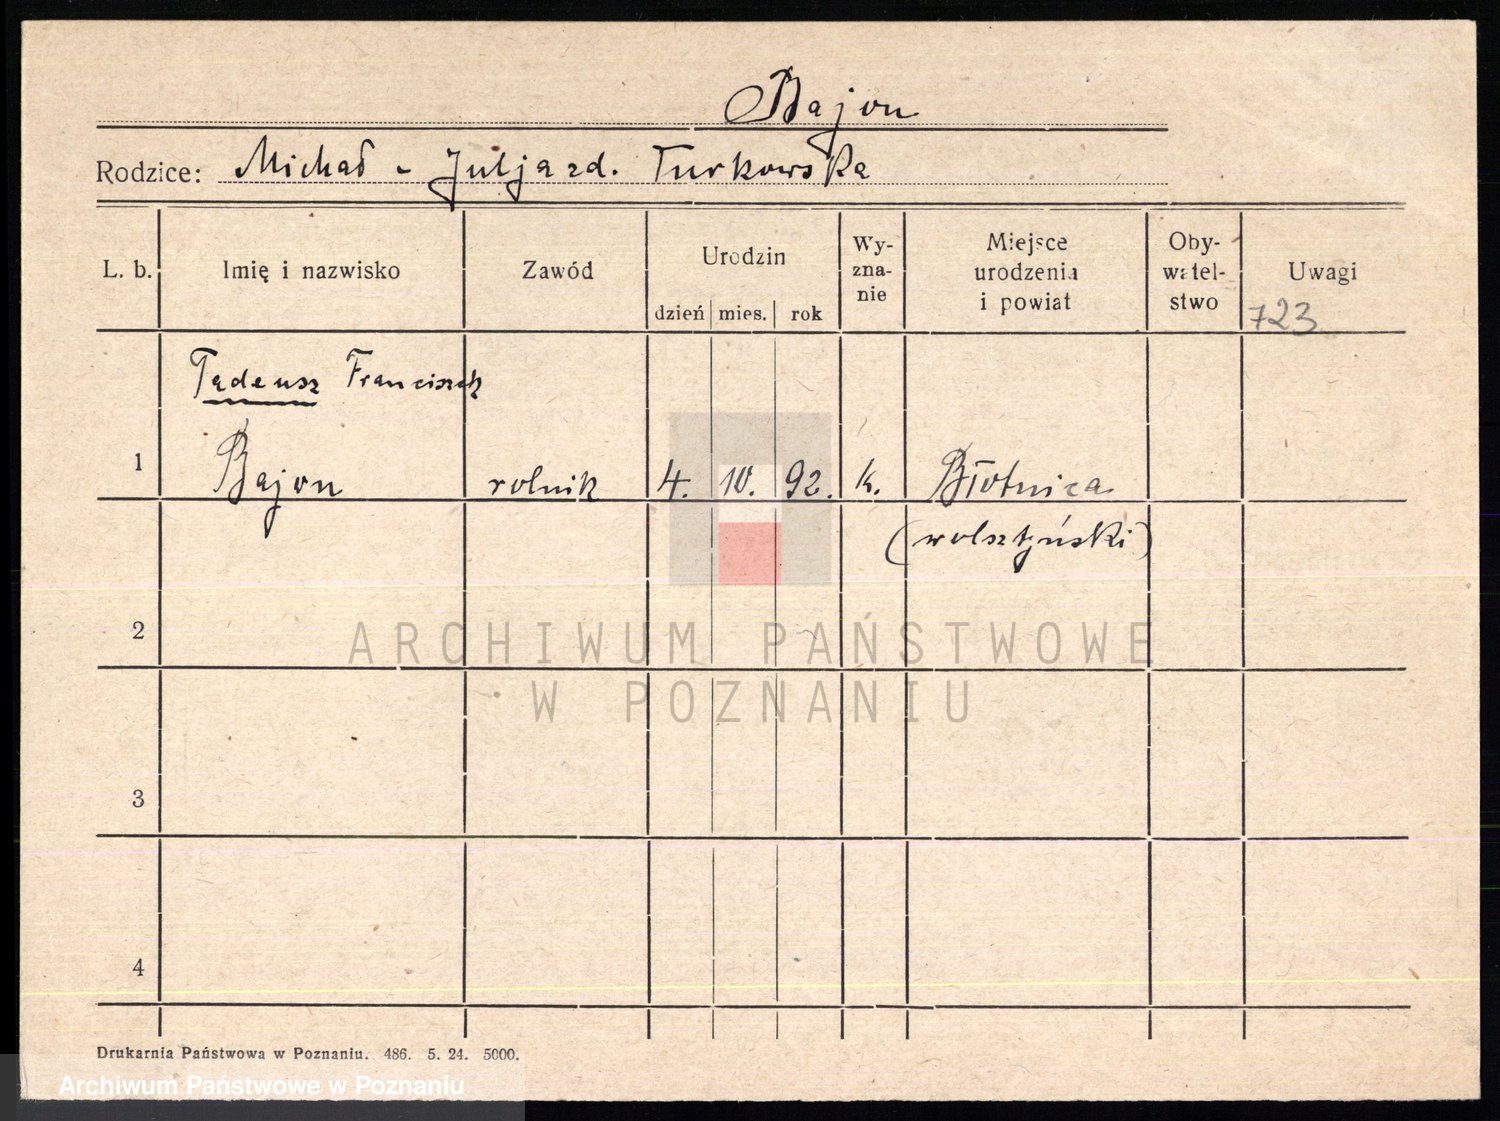 Bajon
Rodzice: Michał - Julja zd. Turkowska
L. b. Imię i nazwisko Zawód Urodzin dzień mies. rok Wy-zna-nie Miejsce urodzenia i powiat Oby-watel-stwo Uwagi
723
Tadeusz Franciszek
1 Bajon rolnik 4. 10. 92. k. Błotnica
(wolsztyński)
2
ARCHIWUM PAŃSTWOWE
W POZNANIU
3
4
Drukarnia Państwowa w Poznaniu. 486. 5. 24. 5000.
Archiwum Państwowe w Poznaniu